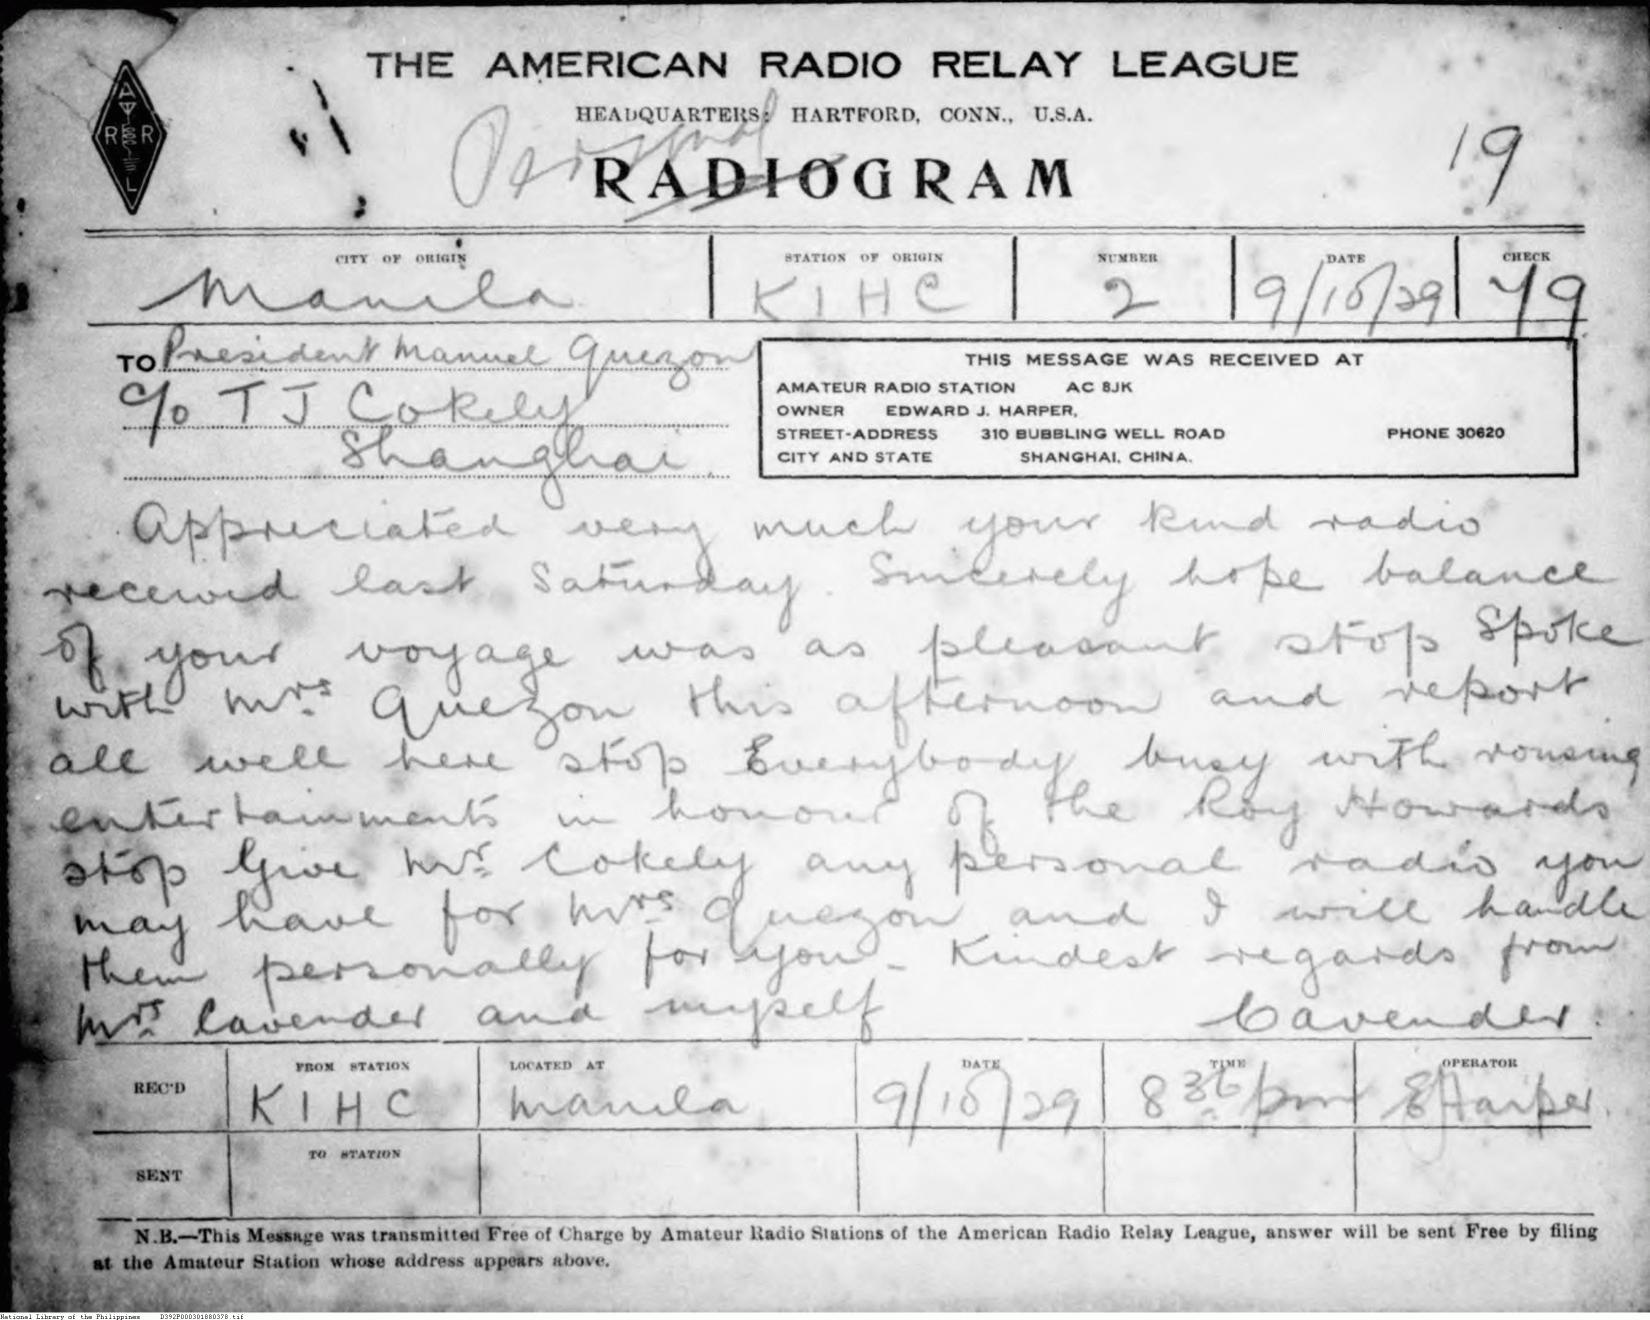 THE AMERICAN RADIO RELAY LEAGUE
HEADQUARTERS: HARTFORD, CONN., U.S.A.
A
R R
L
Personal
RADIOGRAM
19
CITY OF ORIGIN STATION OF ORIGIN NUMBER DATE CHECK
Manila K1HC 2 9/10/29 79
TO President Manuel Quezon
c/o T J Cokely
Shanghai
THIS MESSAGE WAS RECEIVED AT
AMATEUR RADIO STATION AC 8JK
OWNER EDWARD J. HARPER,
STREET-ADDRESS 310 BUBBLING WELL ROAD PHONE 30620
CITY AND STATE SHANGHAI, CHINA.
Appreciated very much your kind radio
received last Saturday. Sincerely hope balance
of your voyage was as pleasant stop Spoke
with Mrs. Quezon this afternoon and report
all well here stop Everybody busy with rousing
entertainments in honour of the Roy Howards
stop Give Mr. Cokely any personal radio you
may have for Mrs. Quezon and I will handle
them personally for you - Kindest regards from
Mrs. Cavender and myself Cavender.
REC'D FROM STATION LOCATED AT DATE TIME OPERATOR
K1HC Manila 9/10/29 8 36 pm EJHarper.
SENT TO STATION
N.B.—This Message was transmitted Free of Charge by Amateur Radio Stations of the American Radio Relay League, answer will be sent Free by filing
at the Amateur Station whose address appears above.
National Library of the Philippines D392P000301880378.tif